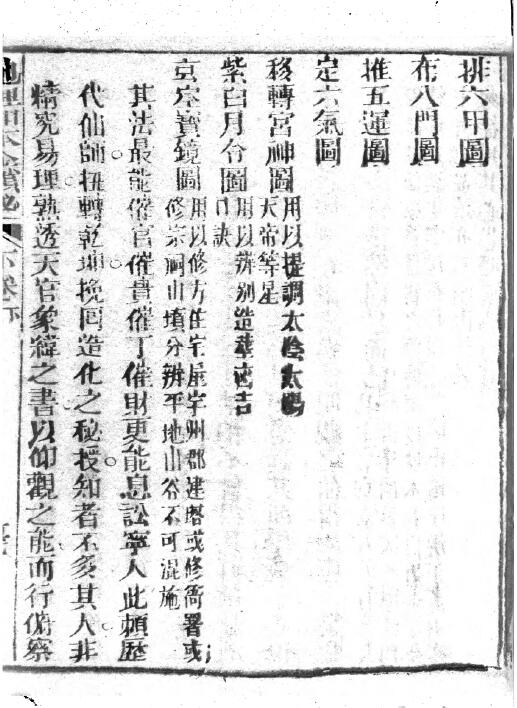 排六甲圖
布八門圖
推五運圖
定六氣圖
移轉宮神圖
用以提調太陰太陽
天帝等星
紫白月台圖
用以辨别造塟
吉
口訣
寳鏡圖
用以修方住宅屋宇州郡建塔或修衙署或
修宗祠山墳分辨平地山谷不可混施
其法最能催官催貴催丁催財更能息訟寧人此頼歷
代仙師扭轉乾坤挽回造化之秘授知者不多其人非
精究易理熟透天官象緯之書以仰觀之能而行俯察
卷下